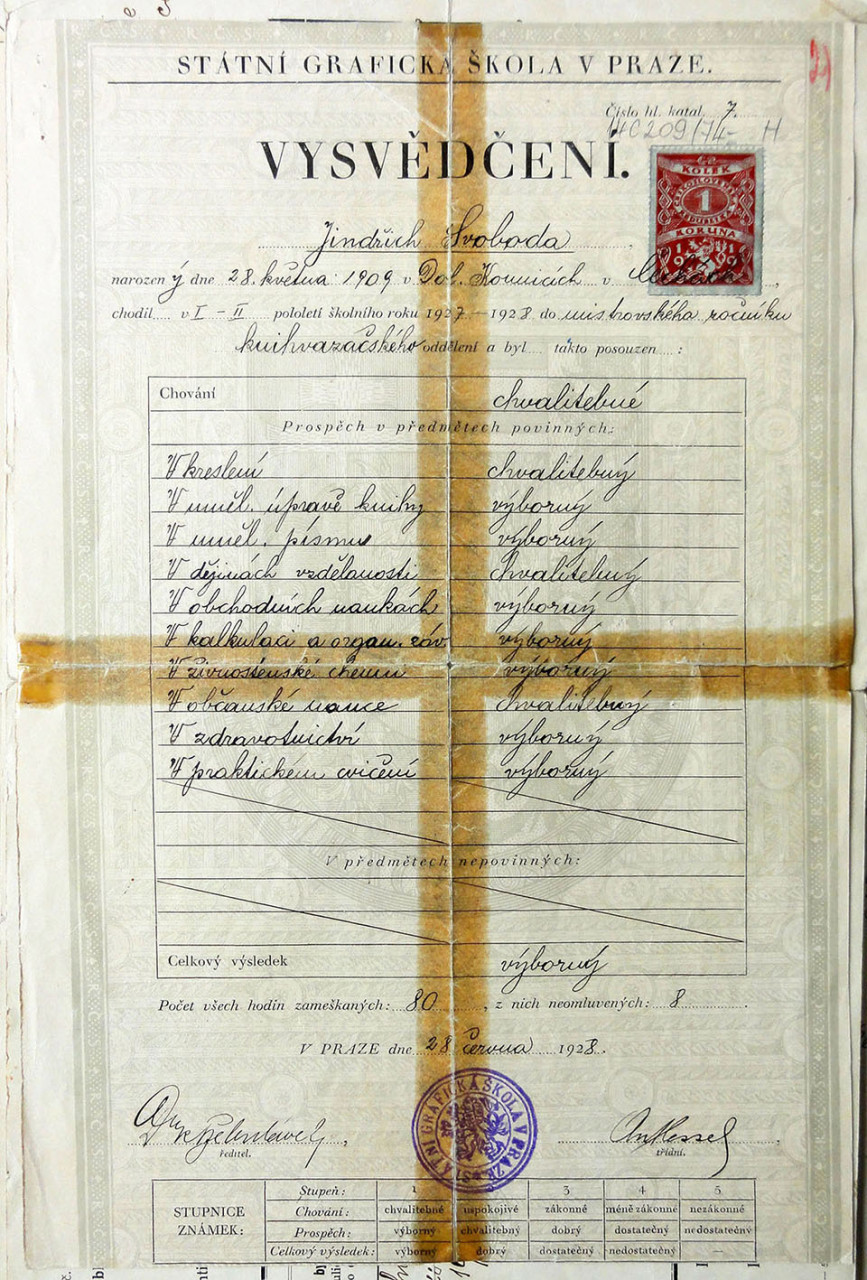 STÁTNÍ GRAFICKÁ ŠKOLA V PRAZE.
Číslo hl. katal. 7.
14C209/74- H
VYSVĚDČENÍ.
KOLEK
1
KORUNA
Jindřich Svoboda
narozený dne 28. května 1909 v Dol. Kounicích v
chodil v I - II pololetí školního roku 1927 - 1928 do mistrovského ročníku
knihvazačského oddělení a byl takto posouzen :
Chování chvalitebné
Prospěch v předmětech povinných:
V kreslení chvalitebný
V uměl. úpravě knihy výborný
V uměl. písmu výborný
V dějinách vzdělanosti chvalitebný
V obchodních naukách výborný
V kalkulaci a organ. záv. výborný
V živnostenské chemii výborný
V občanské nauce chvalitebný
V zdravotnictví výborný
V praktickém cvičení výborný
V předmětech nepovinných:
Celkový výsledek výborný
Počet všech hodin zameškaných: 80, z nich neomluvených: 8.
V PRAZE dne 28 června 1928.
STÁTNÍ GRAFICKÁ ŠKOLA V PRAZE
ředitel. třídní.
STUPNICE ZNÁMEK:
Stupeň: 1 3 4 5
Chování: chvalitebné uspokojivé zákonné méně zákonné nezákonné
Prospěch: výborný chvalitebný dobrý dostatečný nedostatečný
Celkový výsledek: výborný dobrý dostatečný nedostatečný —